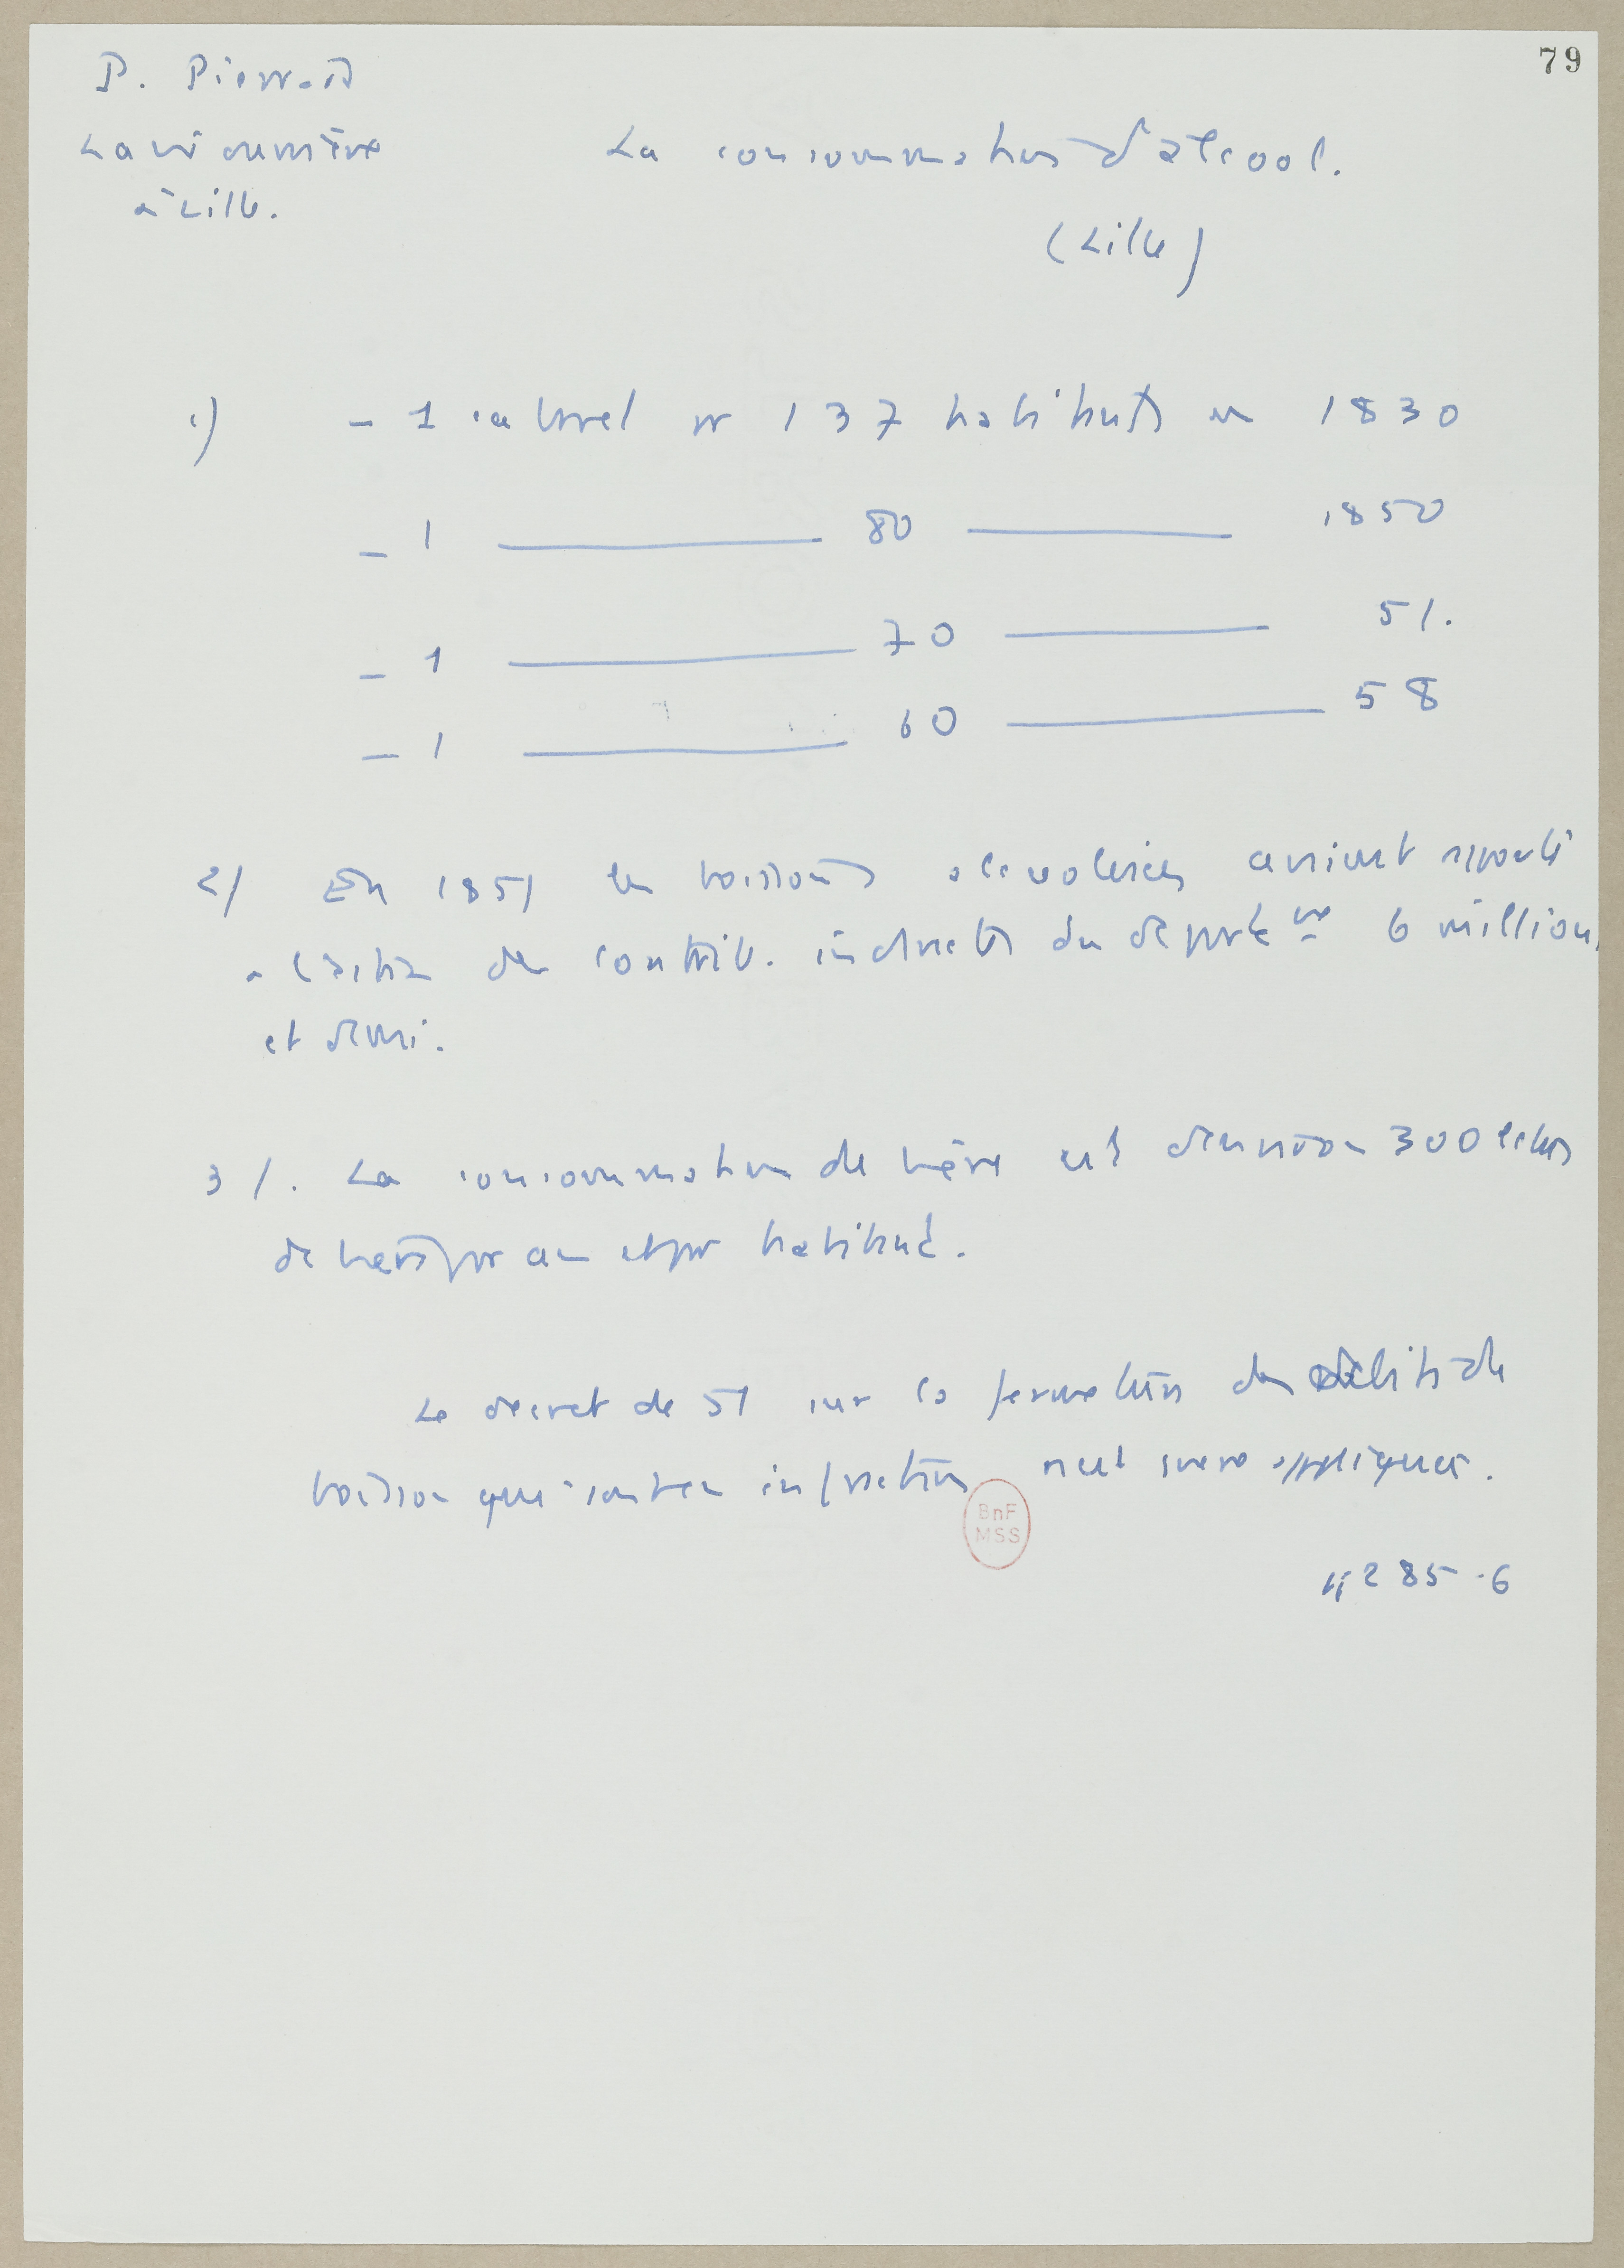 79
P. Pierrard
La vie ouvrière
à Lille.
La consommation d'alcool.
(Lille)
1) - 1 cabaret pr 137 habitants en 1830
- 1 ——— 80 ——— 1850
- 1 ——— 70 ——— 51.
- 1 ——— 60 ——— 58
2/ En 1851 les boissons alcoolisées avaient rapporté
à l'adm des contrib. indirectes du département 6 millions
et demi.
3/. La consommation de bière est d'environ 300 litres
de bière par an et par habitant.
Le décret de 51 sur la fermeture des débits de
boisson qui sont en infraction n'est guère appliqué.
285-6
BnF
MSS